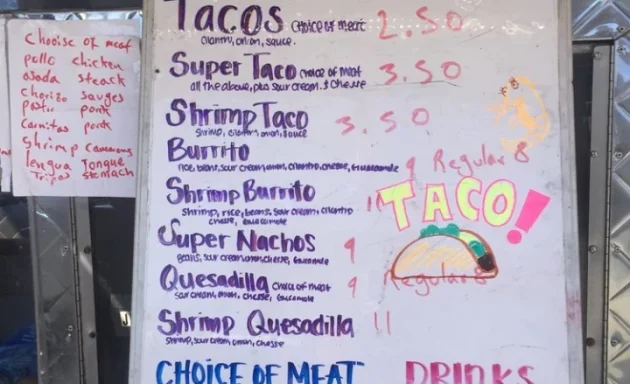 Chooise of meat
pollo chicken
asada steack
Chorizo sauges
pastor pork
Carnitas pork
Shrimp Camarones
lengua Tongue
Tripas stomach
Tacos choice of meat 2.50
cilantro, onion, sauce.
Super Taco choice of meat 3.50
all the above, plus sour cream & cheese
Shrimp Taco 3.50
shrimp, cilantro, onion, sauce
Burrito 9 Regular 8
rice, beans, sour cream, onion, cilantro, cheese, guacamole
Shrimp Burrito 11
shrimp, rice, beans, sour cream, cilantro
cheese, guacamole
TACO!
Super Nachos 9
beans, sour cream, onion, cheese, guacamole
Quesadilla choice of meat 9 Regular 8
sour cream, onion, cheese, guacamole
Shrimp Quesadilla 11
shrimp, sour cream, onion, cheese
CHOICE OF MEAT DRINKS